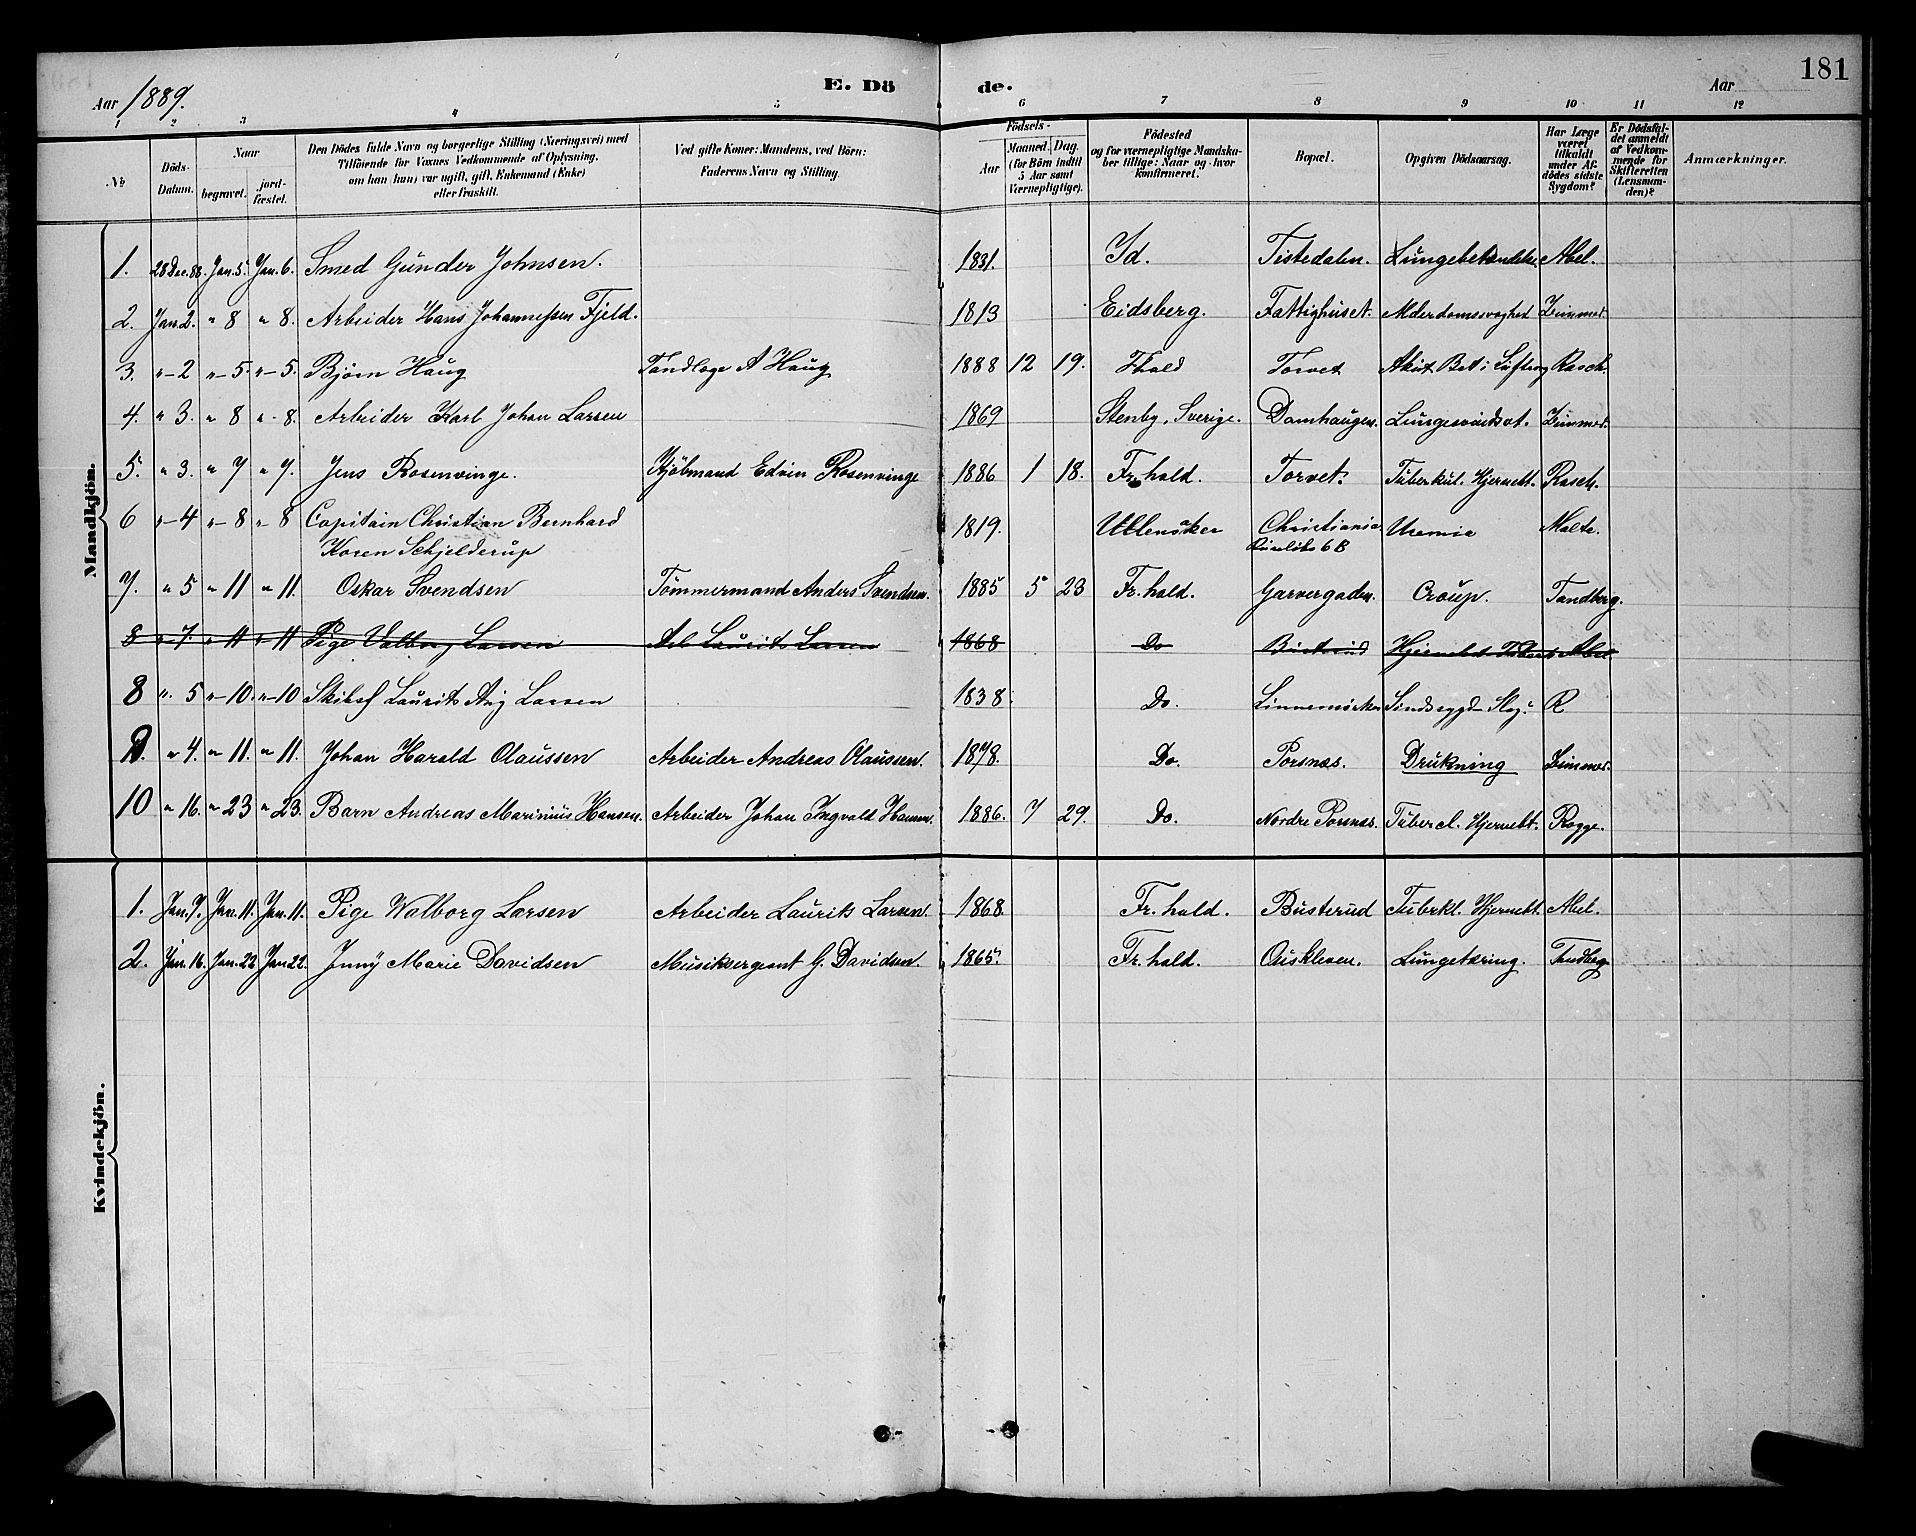 181
Aar 1889.
E. Dö
de.
Aar
1 2 3 4 5 6 7 8 9 10 11 12
№
Döds-Datum.
Naar
begravet.
jord-fæstet.
Den Dödes fulde Navn og borgerlige Stilling (Næringsvei) med
Tilföiende for Voxnes Vedkommende af Oplysning,
om han (hun) var ugift, gift, Enkemand (Enke)
eller fraskilt.
Ved gifte Koner: Mandens, ved Börn:
Faderens Navn og Stilling.
Födsels-
Aar
Maaned. Dag.
(for Börn indtil 5 Aar samt Værnepligtige).
Födested
og for værnepligtige Mandskaber tillige: Naar og hvor konfirmeret.
Bopæl.
Opgiven Dödsaarsag.
Har Læge været tilkaldt under Afdödes sidste Sygdom?
Er Dödsfaldet anmeldt af Vedkommende for Skifteretten (Lensmanden)?
Anmærkninger.
Mandkjön.
1. 28 Dec. 88. Jan. 5. Jan. 6. Smed Gunder Johnsen. 1831. Id. Tistedalen. Abel.
2. Jan. 2. " 8 " 8. Arbeider Hans Johannessen Fjeld. 1813 Eidsberg. Fattighuset. Alderdomssvaghed Zimmer.
3. " - 2 " - 5. " - 5. Björn Haug Tandlæge A Haug 1888 12 19. Fhald Torvet Akut Bet: i Luftrog Rasch.
4. " 3. " 8 " - 8. Arbeider Karl Johan Larsen 1869 Stenby, Sverige. Damhaugen. Lungesvindsot. Zimmer.
5. " 3. " 7 " 7. Jens Rosenvinge. Kjöbmand Edvin Rosenvinge 1886 1 18. Fr.hald. Torvet. Tuberkul. Hjernebt. Rasch.
6 " - 4 " - 8 " 8 Capitain Christian Bernhard 1819. Ullensaker Christiania Uremia Malte.
Koren Schjelderup 6 B
7. " 5 " 11 " 11. Oskar Svendsen Tömmermand Anders Svendsen. 1885 5 23 Fr. hald. Garvergaden. Croup. Tandberg.
8 " 7. " 11 " 11 Pige Valborg Larsen Arb Laurits Larsen 1868 Do Busterud Abel
8 ". 5 " - 10. " - 10 Skibsf Laurits Aug Larsen 1838. Do. R
9. " 4. " 11. " 11. Johan Harald Olaussen Arbeider Andreas Olaussen. 1878. Do. Porsnæs. Drukning Zimmer.
10 " 16. " 23 " 23. Barn Andreas Marinius Hansen. Arbeider Johan Ingvald Hansen. 1886. 7 29. Do. Nordre Porsnæs. Tubercl. Hjernebt. Rogge.
Kvindekjön.
1. Jan. 7. Jan. 11. Jan. 11. Pige Walborg Larsen Arbeider Laurits Larsen. 1868. Fr. hald. Busterud Tuberkl. Hjernebt. Abel.
2. Jan. 16. Jan. 22 Jan 22. Jnny Marie Davidsen Musiksergeant G. Davidsen. 1865. Fr. hald. Ouskleven. Lungetæring. Tandberg